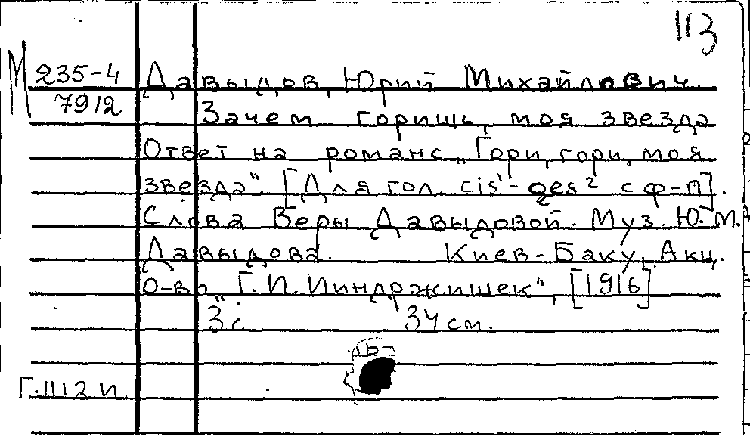 113
М 235-4
7912
Давыдов, Юрий Михайлович
Зачем горишь, моя звезда
Ответ на романс „Гори, гори, моя
звезда". [Для гол. cis¹-ges² с ф-п].
Слова Веры Давыдовой. Муз. Ю. М.
Давыдова. Киев-Баку, Акц.
О-во „Г. И. Индржишек", [1916]
3 с. 34 см.